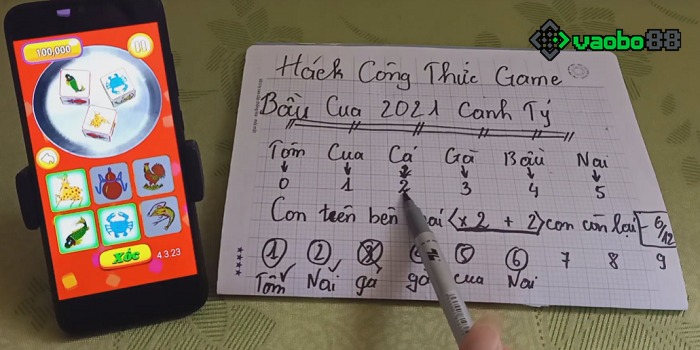 vaobo88
100,000
Xốc
4.3.23
Hách Công Thức Game
Bầu Cua 2021 Canh Tý
Tôm Cua Cá Gà Bầu Nai
0 1 2 3 4 5
Con trên bên (x2 + 2) con còn lại - 6/12
1 2 3 5 6 7 8 9
Tôm Nai gà gà cua Nai